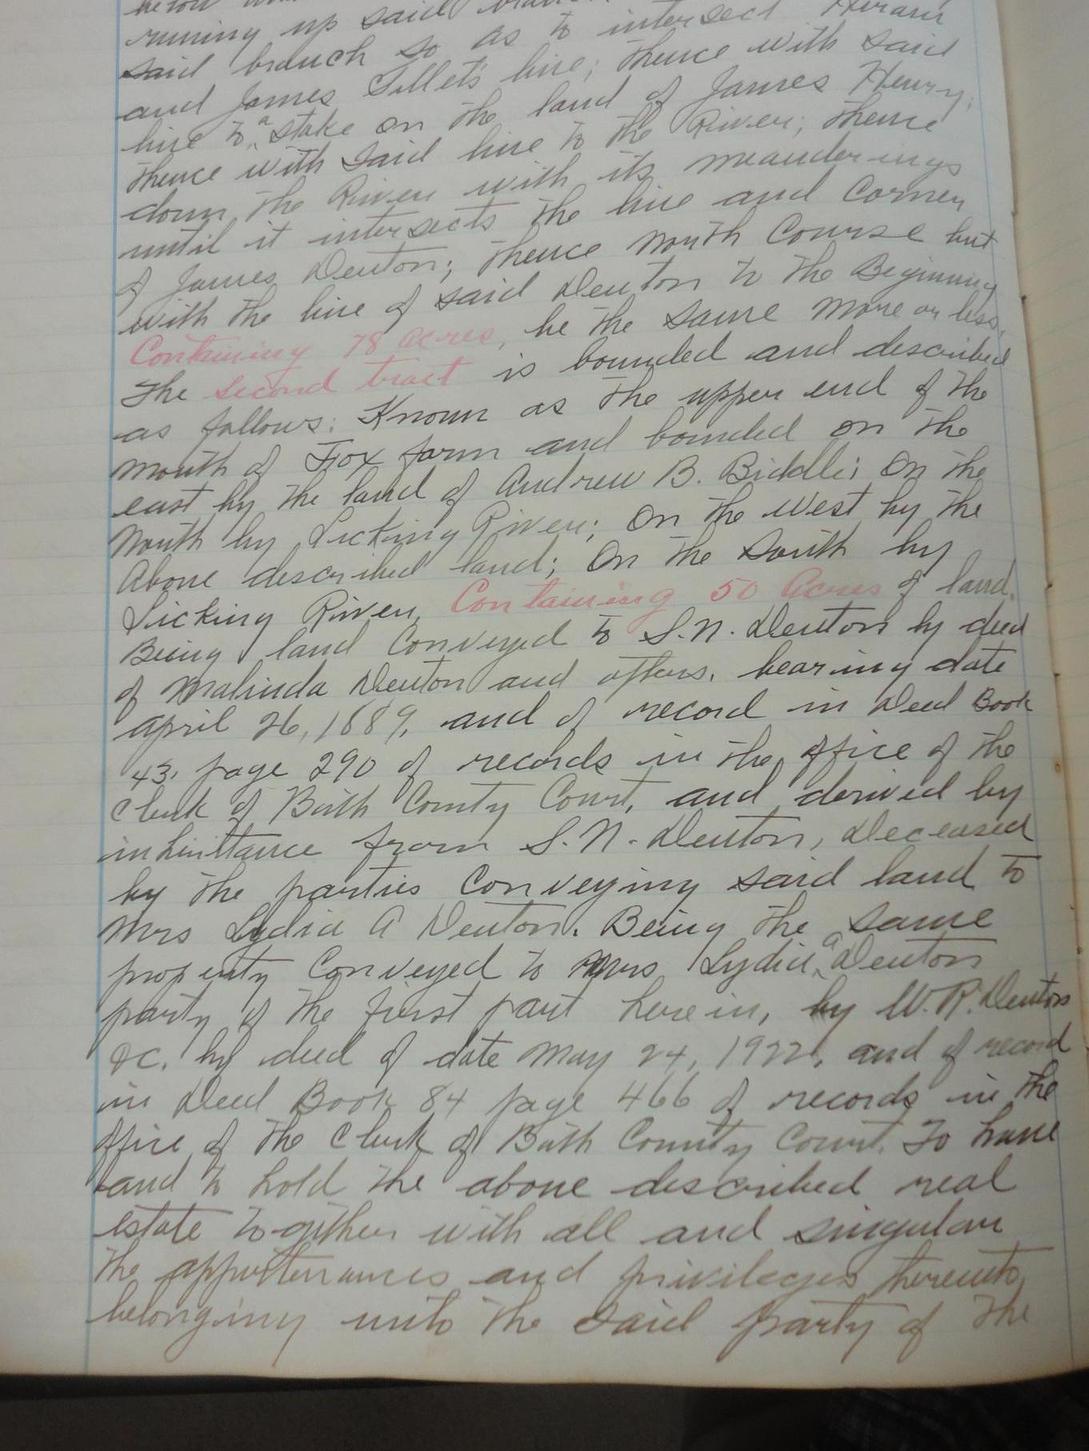 running up said branch
said branch so as to intersect Hiram
and James Tillets line; thence with said
line to a stake on the land of James Henry;
thence with said line to the River; thence
down the River with its meanderings
until it intersects the line and corner
of James Denton; thence North Course but
with the line of said Denton to the Beginning
Containing 78 acres, be the same more or less.
The second tract is bounded and described
as follows: Known as the upper end of the
mouth of Fox farm and bounded on the
east by the land of Andrew B. Biddle; On the
North by Licking River; On the West by the
above described land; On the South by
Licking River, Containing 50 Acres of land.
Being land conveyed to S.N. Denton by deed
of Malinda Denton and others, bearing date
April 26, 1889, and of record in Deed Book
43, page 290 of records in the office of the
Clerk of Bath County Court, and derived by
inheritance from S.N. Denton, Deceased
by the parties conveying said land to
Mrs Lydia A Denton. Being the same
property conveyed to Mrs Lydia a Denton
party of the first part herein, by W.R. Denton
&c. by deed of date May 24, 1922, and of record
in Deed Book 84 page 466 of records in the
office of the Clerk of Bath County Court. To have
and to hold the above described real
estate together with all and singular
the appurtenances and privileges thereunto
belonging unto the said party of the